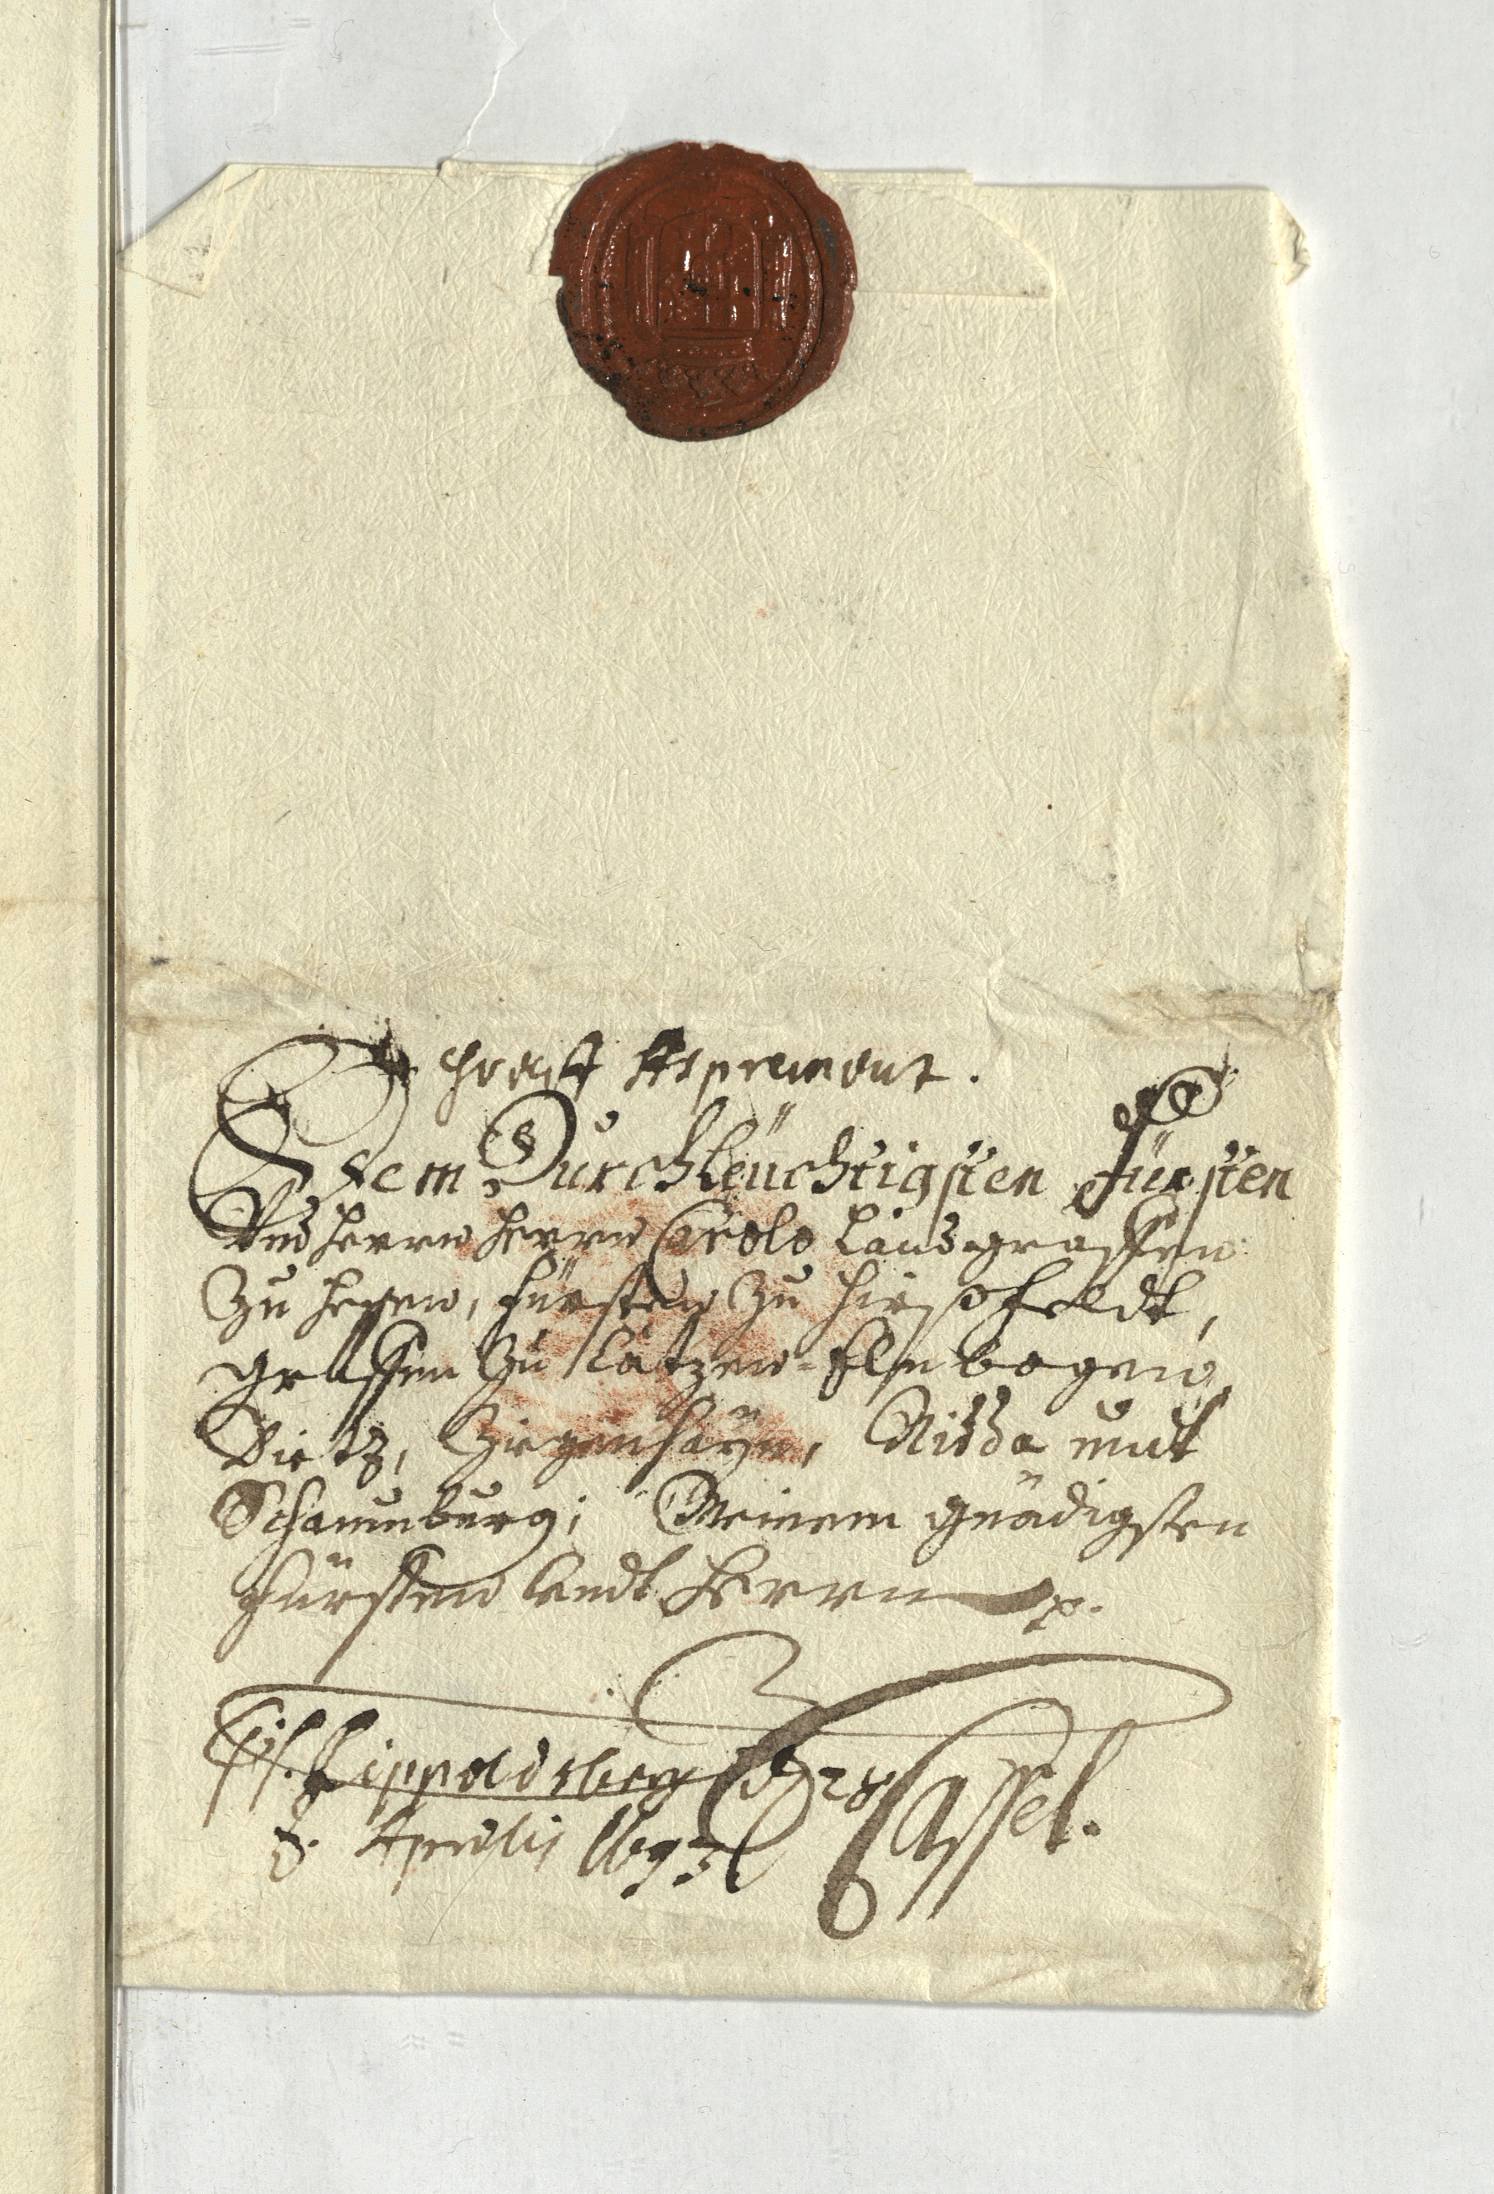 Aspremont.
Dem Durchleüchtigsten Fürsten
Vnd Herrn Herrn Carolo Landtgraffen
Zu Heßen, Fürsten Zu Hirßfeldt,
Graffen Zu Catzen-Elnbogen,
Dietz, Ziegenhayn, Nidda undt
Schaumburg; Meinem gnädigsten
Fürsten Vndt Herrn p.
ps. Lippoldsberg d 28
Aprilis 1693.
Cassel.